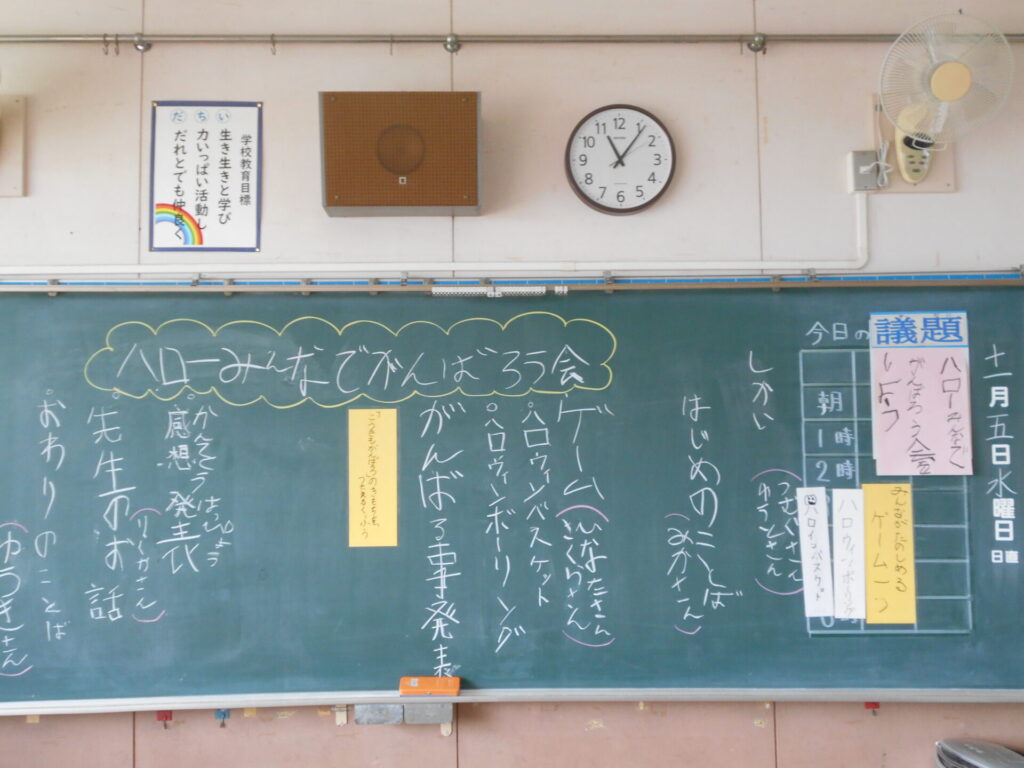 学校教育目標
い 生き生きと学び
ち 力いっぱい活動し
だ だれとでも仲良く
12
1
2
3
4
5
6
7
8
9
10
11
十一月五日水曜日
日直
今日の
朝
1時
2時
議題
ハローみんなで
がんばろう会
しよう
みんながたのしめる
ゲーム二つ
ハロウィンボーリング
ハロウィンバスケット
ハローみんなでがんばろう会
しかい
(つむぎさん
ゆうとさん)
はじめのことば
(みかさん)
ゲーム(ひなたさん
さくらさん)
°ハロウィンバスケット
°ハロウィンボーリング
がんばる事発表
かんそうはっぴょう
感想発表
(りくかさん)
°先生のお話
°おわりのことば
(ゆづきさん)